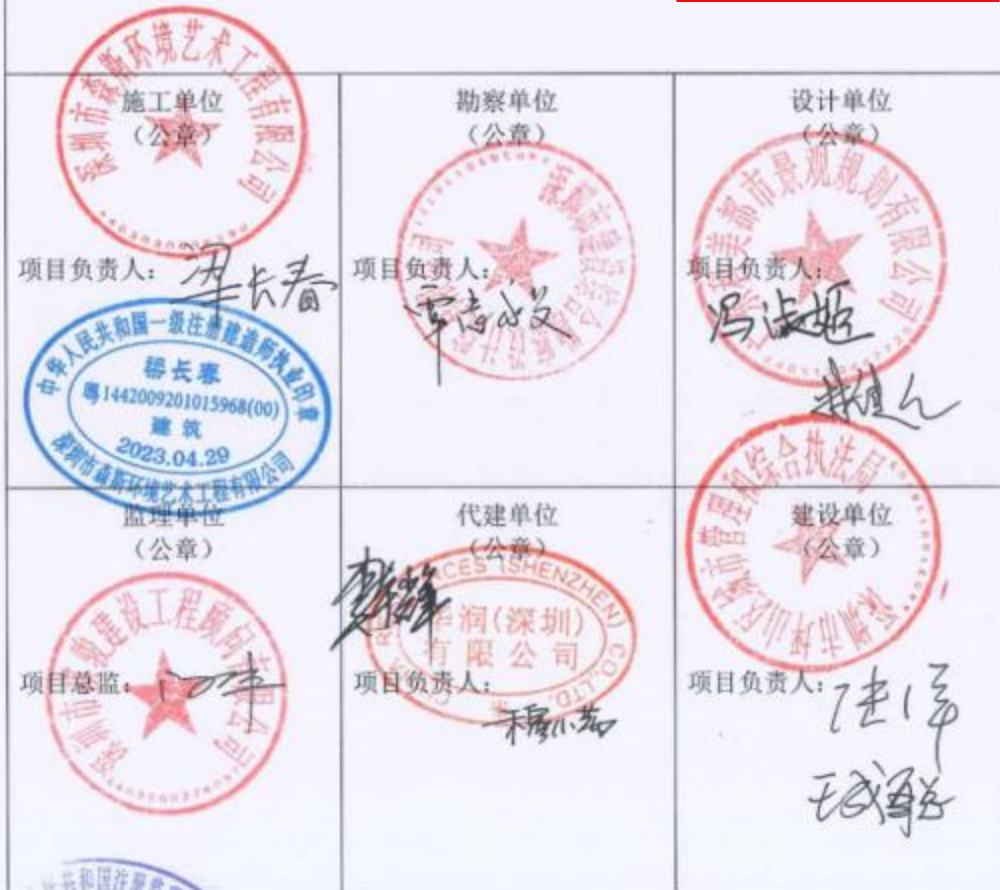 施工单位
（公章）
深圳市森斯环境艺术工程有限公司
项目负责人：
梁长春
中华人民共和国一级注册建造师执业印章
梁长春
粤1442009201015968(00)
建筑
2023.04.29
深圳市森斯环境艺术工程有限公司
勘察单位
（公章）
项目负责人：
覃志毅
设计单位
（公章）
美都市景观规划有限公司
项目负责人：
冯淑姬
监理单位
（公章）
深圳市 建设工程顾问有限公司
项目总监：
代建单位
（公章）
CES (SHENZHEN) CO.,LTD.
华润(深圳)
有限公司
项目负责人：
建设单位
（公章）
深圳市坪山区城市管理和综合执法局
项目负责人：
共和国注册监